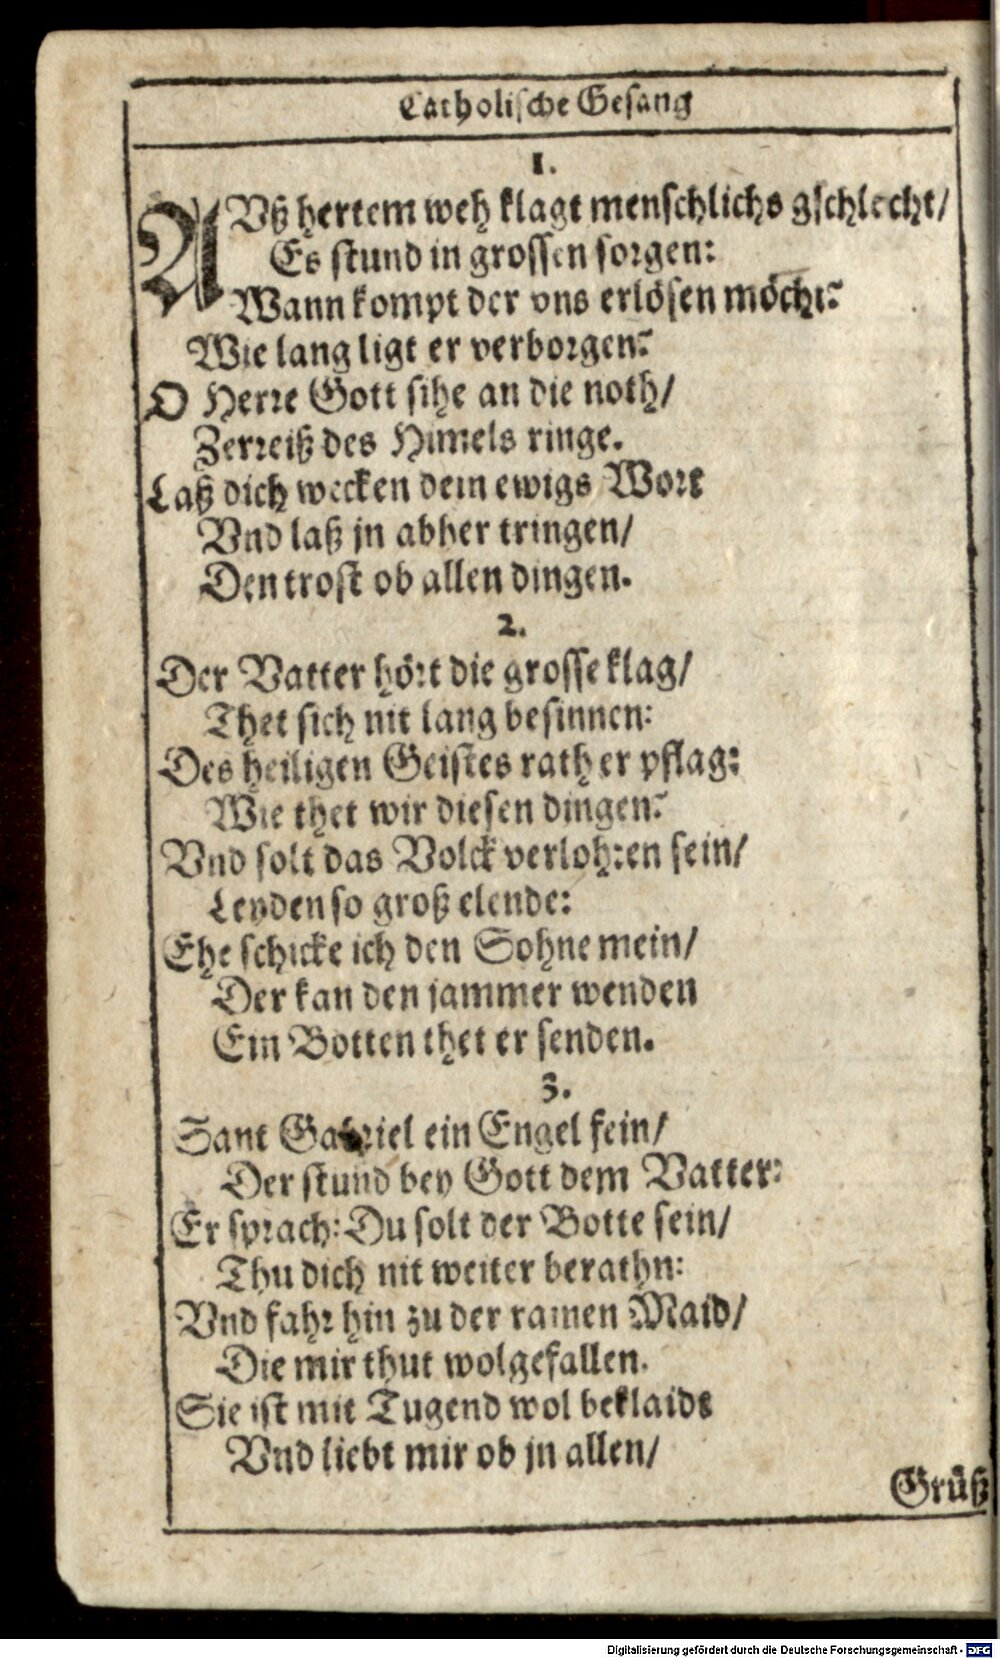 Catholische Gesang
1.
AVß hertem weh klagt menschlichs gschlecht/
Es stund in grossen sorgen:
Wann kompt der vns erlösen möcht?
Wie lang ligt er verborgen?
O Herre Gott sihe an die noth/
Zerreiß des Himels ringe.
Laß dich wecken dein ewigs Wort
Vnd laß jn abher tringen/
Den trost ob allen dingen.
2.
Der Vatter hört die grosse klag/
Thet sich nit lang besinnen:
Des heiligen Geistes rath er pflag:
Wie thet wir diesen dingen?
Vnd solt das Volck verlohren sein/
Leyden so groß elende:
Ehe schicke ich den Sohne mein/
Der kan den jammer wenden
Ein Botten thet er senden.
3.
Sant Gabriel ein Engel fein/
Der stund bey Gott dem Vatter:
Er sprach: Du solt der Botte sein/
Thu dich nit weiter berathn:
Vnd fahr hin zu der rainen Maid/
Die mir thut wolgefallen.
Sie ist mit Tugend wol beklaidt
Vnd liebt mir ob jn allen/
Grüß
Digitalisierung gefördert durch die Deutsche Forschungsgemeinschaft - DFG